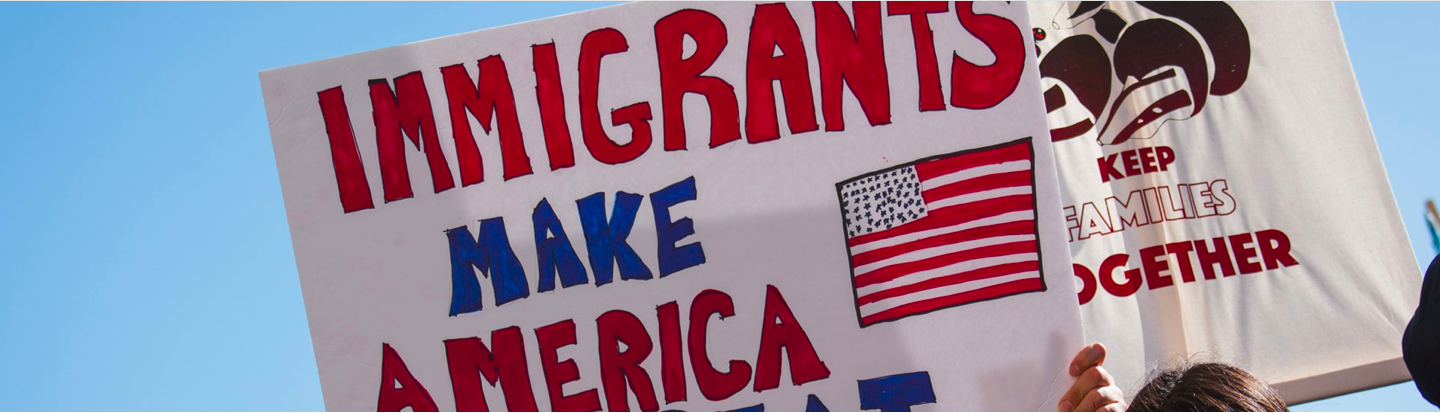 IMMIGRANTS
MAKE
AMERICA
KEEP
FAMILIES
TOGETHER